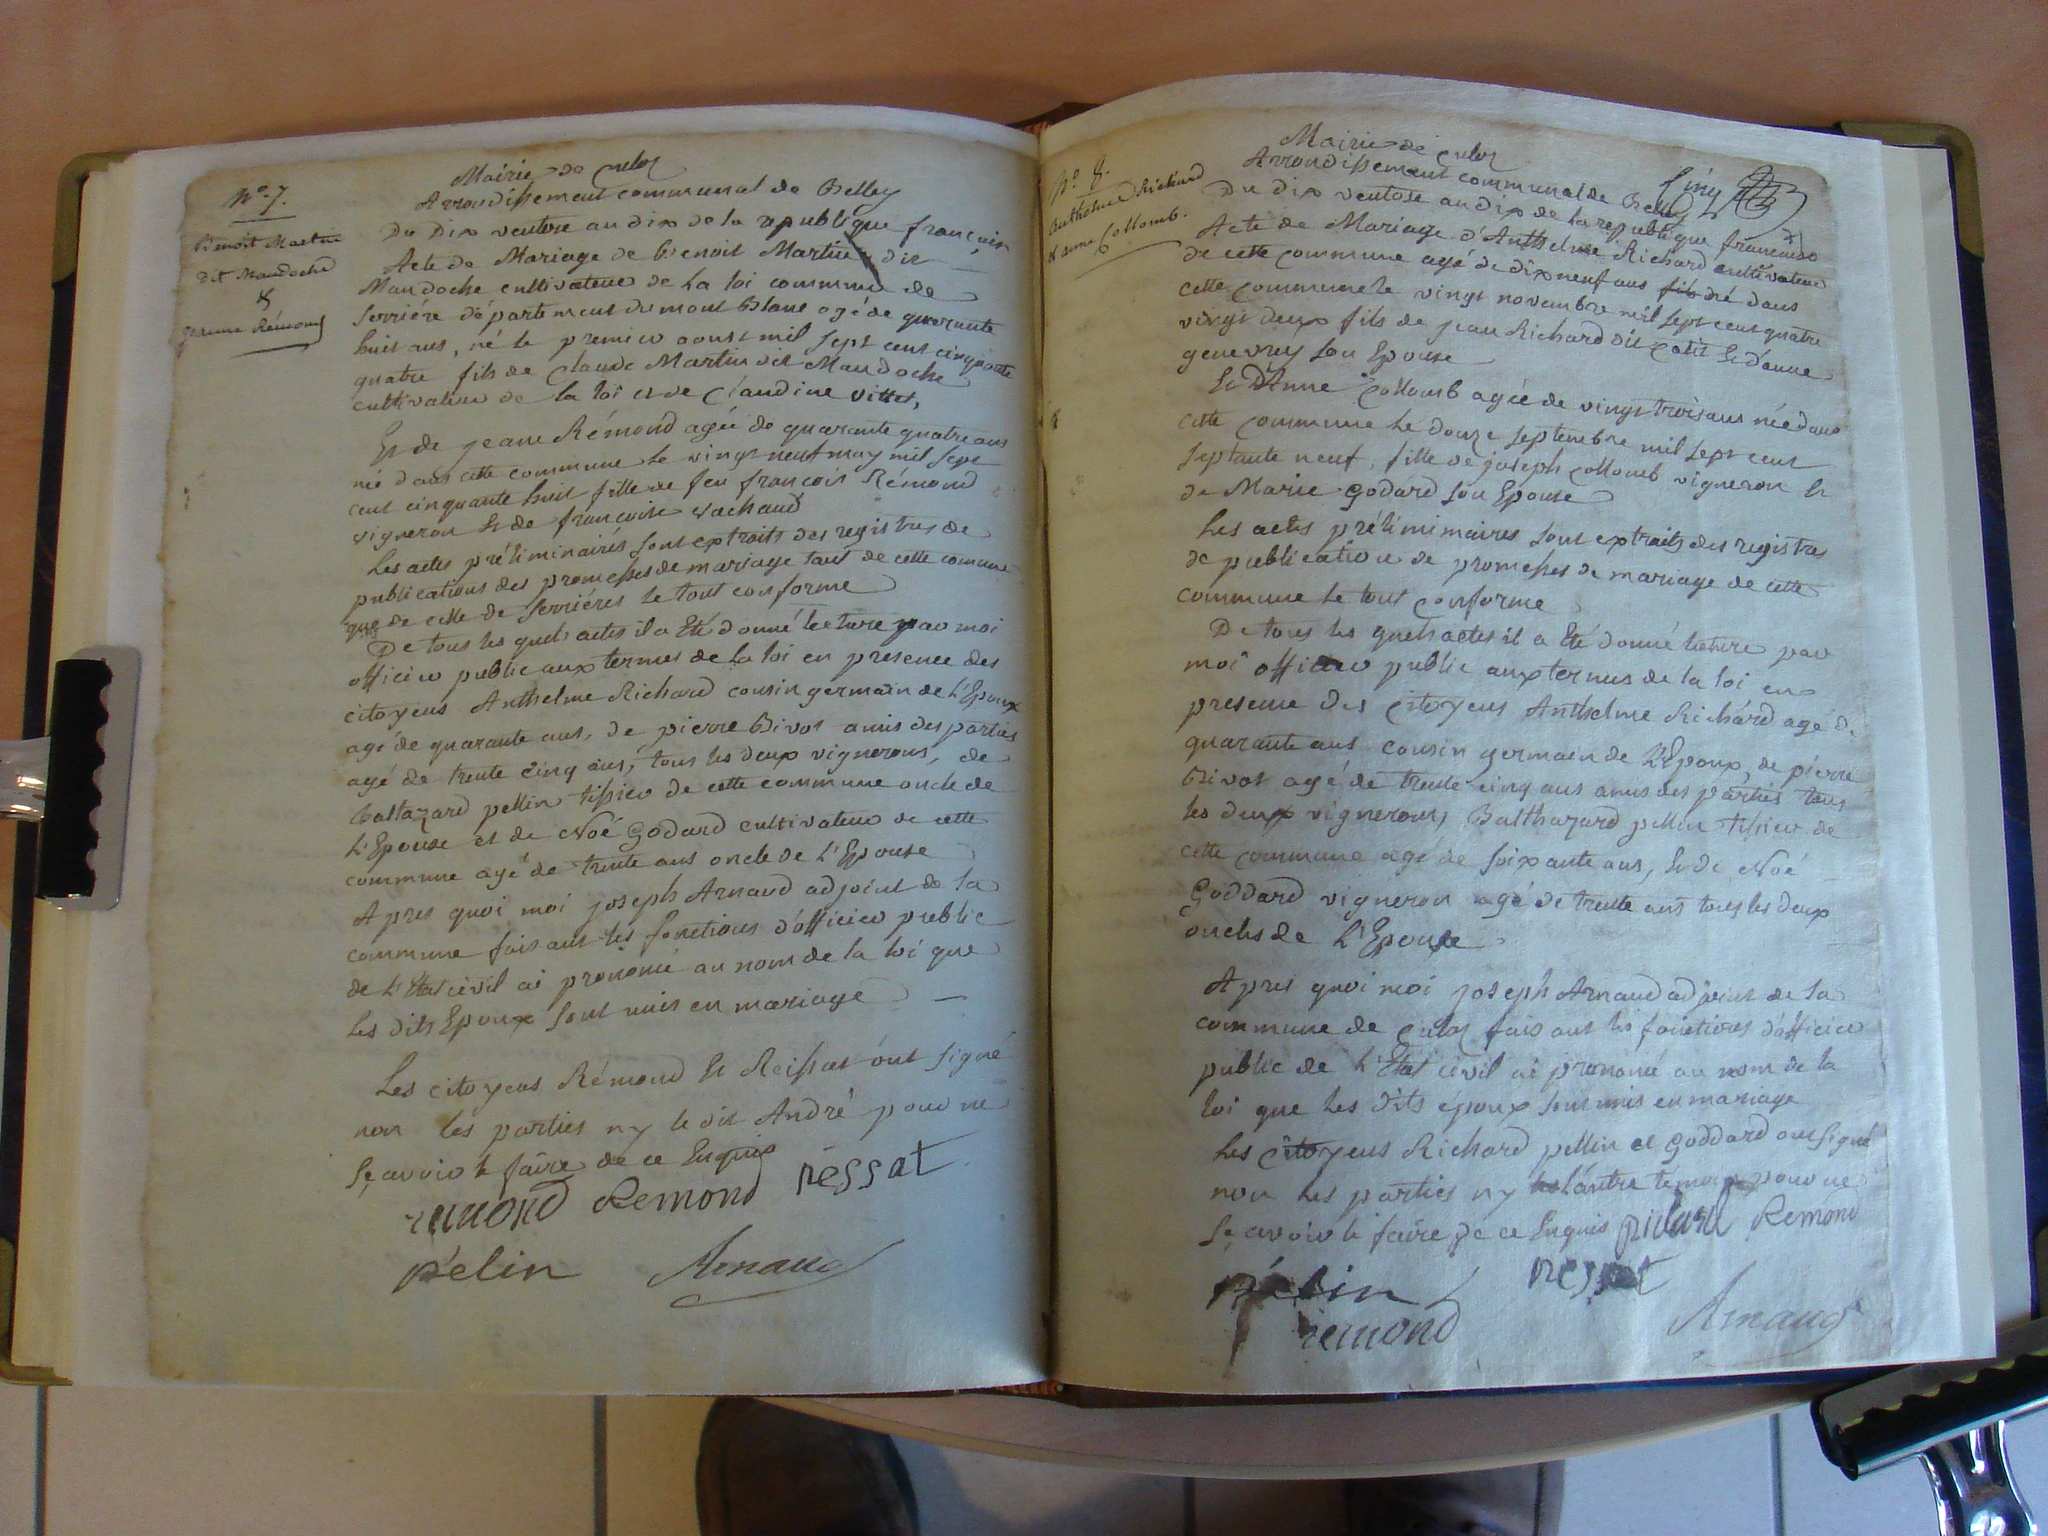 Mairie de Culoz
Arrondissement communal de Belley
N°. 7.
Du Dix ventose an dix de la republique francaise
Benoit Martin
dit Mandoche
&
Jeanne Rémond
Acte de Mariage de Benoit Martin dit
Mandoche cultivateur de La loi commune de
Serriére département du mont Blanc agé de quarante
huit ans, né le premier aoust mil sept cent cinquante
quatre fils de Claude Martin dit Mandoche
cultivateur de la loi et de Claudine vittet,
Et de jeane Rémond agée de quarante quatre ans
née dans cette commune le vingt neuf may mil sept
cent cinquante huit fille de feu françois Rémond
vigneron Et de françoise vachaud
Les actes préliminaires sont extraits des registres de
publications des promesses de mariage tant de cette comune
que de celle de Serriéres le tout conforme
De tous les quels actes il a Eté donné lecture par moi
officier public aux termes de la loi en presence des
citoyens Anthelme Richard cousin germain de L'Epoux
agé de quarante ans, de pierre Bivot amis des parties
agé de trente cinq ans, tous les deux vignerons, de
Baltazard pellin tissier de cette commune oncle de
L'Epouse et de Noé Godard cultivateur de cette
commune agé de trente ans oncle de L'Epouse
Apres quoi moi joseph Arnaud adjoint de la
commune faisant les fonctions d'officier public
de L'Etat civil ai prononcé au nom de la loi que
Les dits Epoux sont unis en mariage
Les citoyens Rémond Et Reissat ont signé
non les parties ny le dit André pour ne
sçavoir le faire de ce Enquis
remond Remond ressat
pélin Arnaud
Mairie de Culoz
Arrondissement communal de Belley
N°. 8.
Anthelme Richard
& anne Collomb.
Cinq
Du dix ventose an dix de la republique francaise
Acte de Mariage d'Anthelme Richard cultivateur
de cette commune agé de dix neuf ans fils né dans
cette commune le vingt novembre mil sept cent quatre
vingt deux fils de jean Richard dit Catit Et d'anne
genevrey son Epouse
Et D'Anne Collomb agée de vingt trois ans née dans
cette commune Le douze septembre mil sept cent
septante neuf, fille de joseph Collomb vigneron Et
de Marie Godard son Epouse
Les actes préliminaires sont extraits des registres
de publication de promesses de mariage de cette
commune Le tout conforme
De tous les quels actes il a Eté donné lecture par
moi officier public aux termes de la loi en
presence des citoyens Anthelme Richard agé de
quarante ans cousin germain de L'Epoux, de pierre
Bivot agé de trente cinq ans amis des parties tous
les deux vignerons, Balthazard pellin tissier de
cette commune agé de soixante ans, Et de Noé
Goddard vigneron agé de trente ans tous les deux
oncles de L'Epouse
Apres quoi moi joseph Arnaud adjoint de la
commune de Culoz faisant les fonctions d'officier
public de L'Etat civil ai prononcé au nom de la
loi que Les dits époux sont unis en mariage
Les Citoyens Richard pellin et Goddard ont signé
non Les parties ny l'autre témoin pour ne
sçavoir le faire de ce Enquis richard Remond
Pélin ressat
remond Arnaud